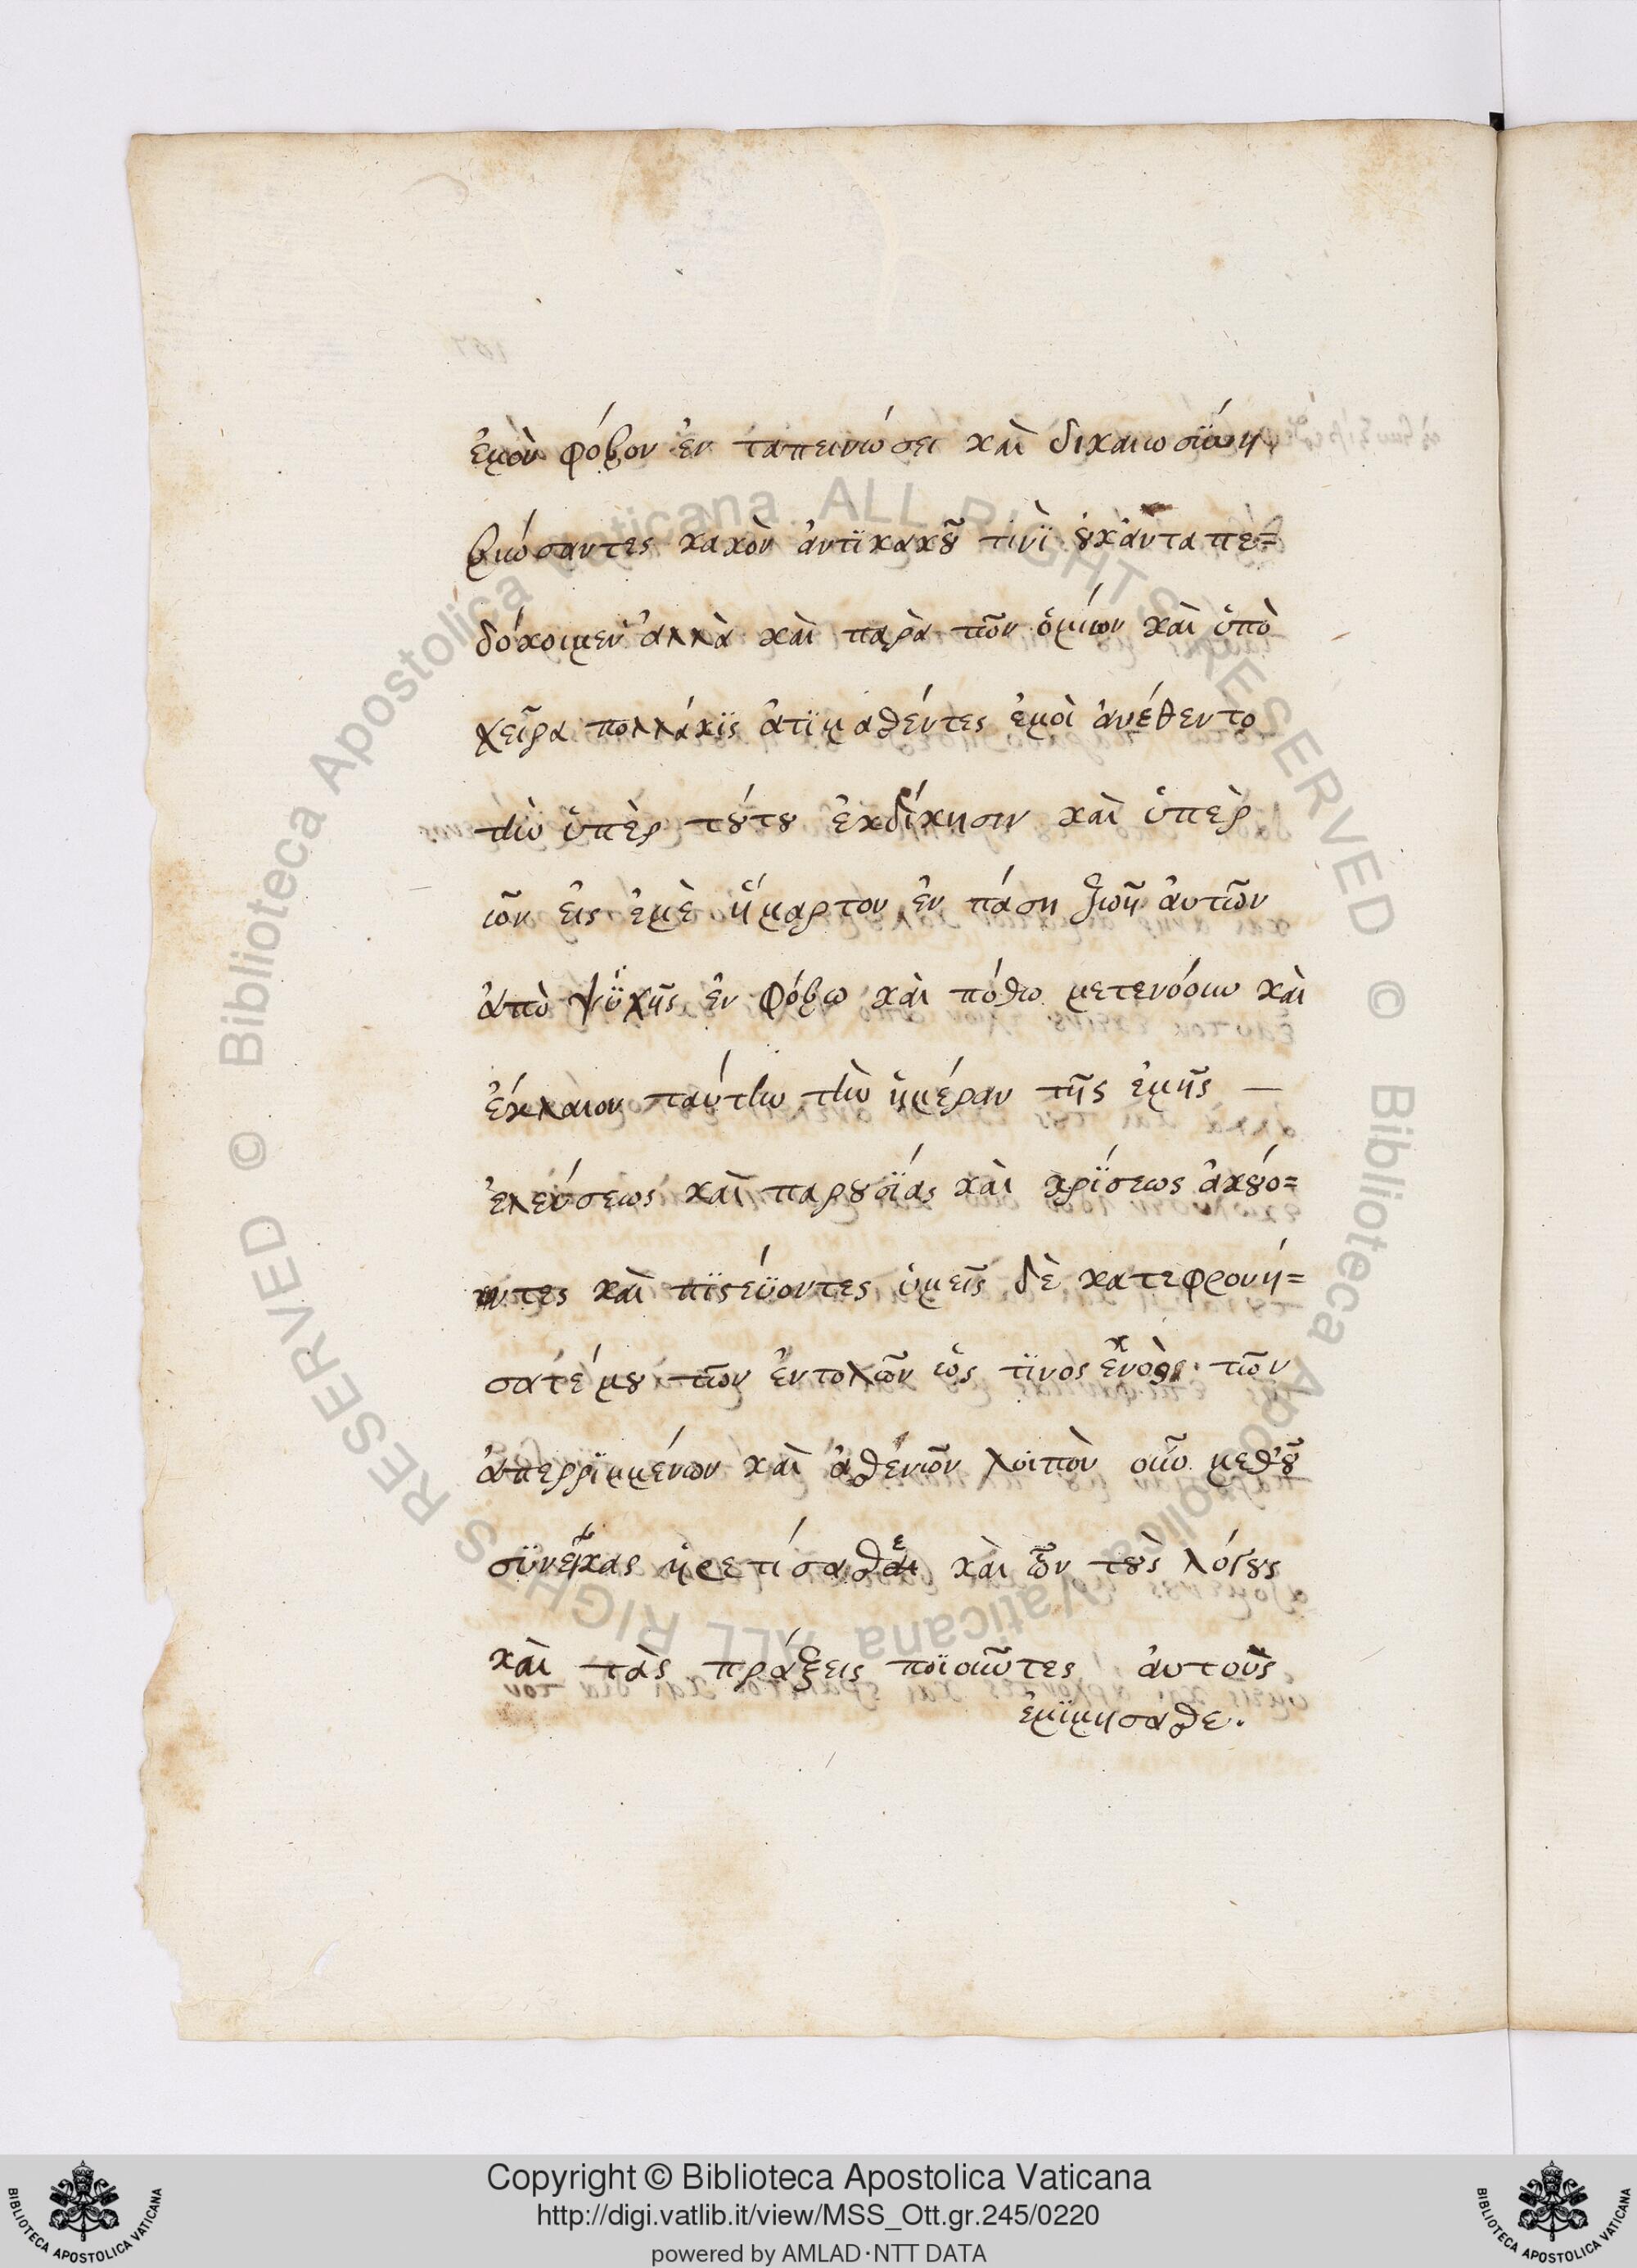 ἐμὸν φόβον ἐν ταπεινώσει καὶ δικαιοσύνη
βιώσαντες κακὸν ἀντὶ κακοῦ τινὶ οὐκ ἀνταπε=
δόκοιμεν ἀλλὰ καὶ παρὰ τῶν ὁμίων καὶ ὑπὸ
χεῖρα πολλάκϊς ἀτϊμασθέντες ἐμοὶ ἀνέθεντο
τὴν ὑπὲρ τούτου ἐκδίκησιν καὶ ὑπὲρ
ὧν εἰς ἐμὲ ἥμαρτον ἐν πάση ζωῇ ἀυτῶν
ἀπὸ ψϋχῆς ἐν φόβω καὶ πόθω μετενόουν καὶ
ἐκλαιον ταύτην τὴν ἡμέραν τῆς ἐμῆς —
ἐλεύσεως καὶ παρουσϊάς καὶ κρϊσεως ἀκουό=
ντες καὶ πϊστεϋοντες ὑμεῖς δὲ κατεφρονή=
σατέ μου τῶν ἐντολῶν ὡς τϊνος ἑνὸς τῶν
ἀπερρϊμμένων καὶ ἀσθενῶν λοιπὸν οὖν μεθ' οὗ
σϋνεῖκας ἡρετίσασθε καὶ ὧν τοὺς λόγους
καὶ τὰς πράξεις ποϊοῦντες ἀυτοὺς
ἐμϊμησασθε.
Copyright © Biblioteca Apostolica Vaticana
http://digi.vatlib.it/view/MSS_Ott.gr.245/0220
powered by AMLAD·NTT DATA
BIBLIOTECA APOSTOLICA VATICANA
BIBLIOTECA APOSTOLICA VATICANA
© Biblioteca Apostolica Vaticana ALL RIGHTS RESERVED
© Biblioteca Apostolica Vaticana ALL RIGHTS RESERVED